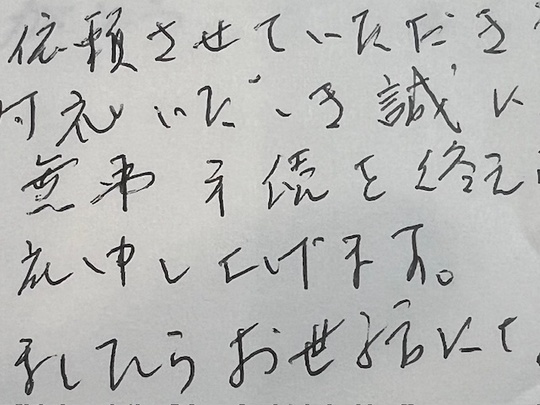 依頼させていただき
いただき誠に
無事手続を終え
礼申し上げます。
ましたらお世話に